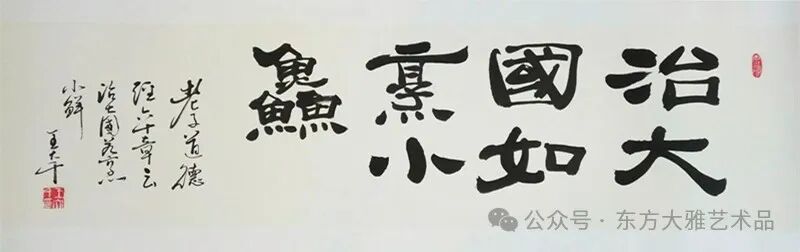 治大
國如
烹小
鱻
老子道德
經六十章云
治大國若烹
小鮮
公众号 · 东方大雅艺术品